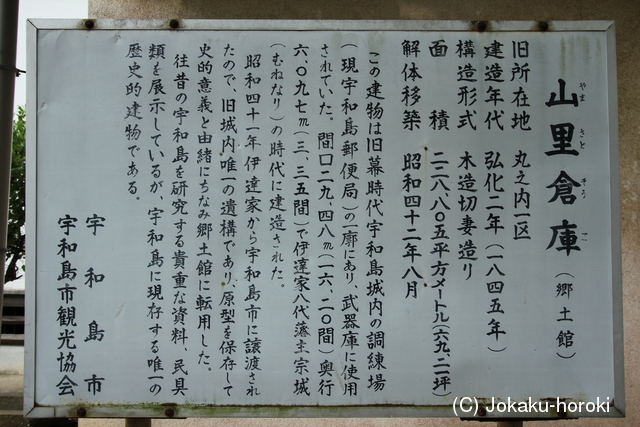 山里倉庫（郷土館）
やま ざと そう こ
旧所在地　丸之内一区
建造年代　弘化二年（一八四五年）
構造形式　木造切妻造り
面　　積　二二八八〇五平方メートル（六九、二一坪）
解体移築　昭和四十二年八月
この建物は旧幕時代宇和島城内の調練場
（現宇和島郵便局）の一廓にあり、武器庫に使用
されていた。間口二九、四八m（一六、二〇間）奥行
六、〇九七m（三、三五間）で伊達家八代藩主宗城
（むねなり）の時代に建造された。
昭和四十一年伊達家から宇和島市に譲渡され
たので、旧城内唯一の遺構であり、原型を保存して
史的意義と由緒にちなみ郷土館に転用した。
往昔の宇和島を研究する貴重な資料、民具
類を展示しているが、宇和島に現存する唯一の
歴史的建物である。
宇和島市
宇和島市観光協会
(C) Jokaku-horoki